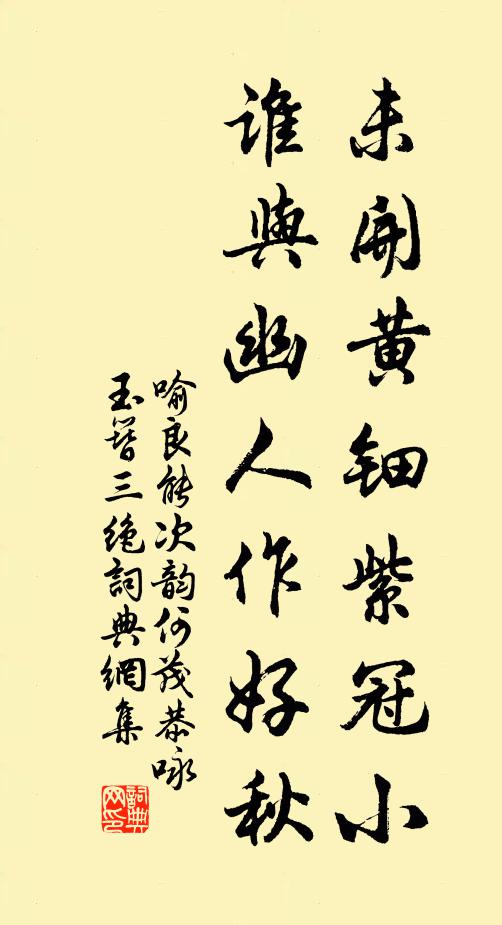 未開黄钿紫冠小
誰與幽人作好秋
喻良能次韵何茂恭咏
玉簪三绝詞典網集
詞典网印